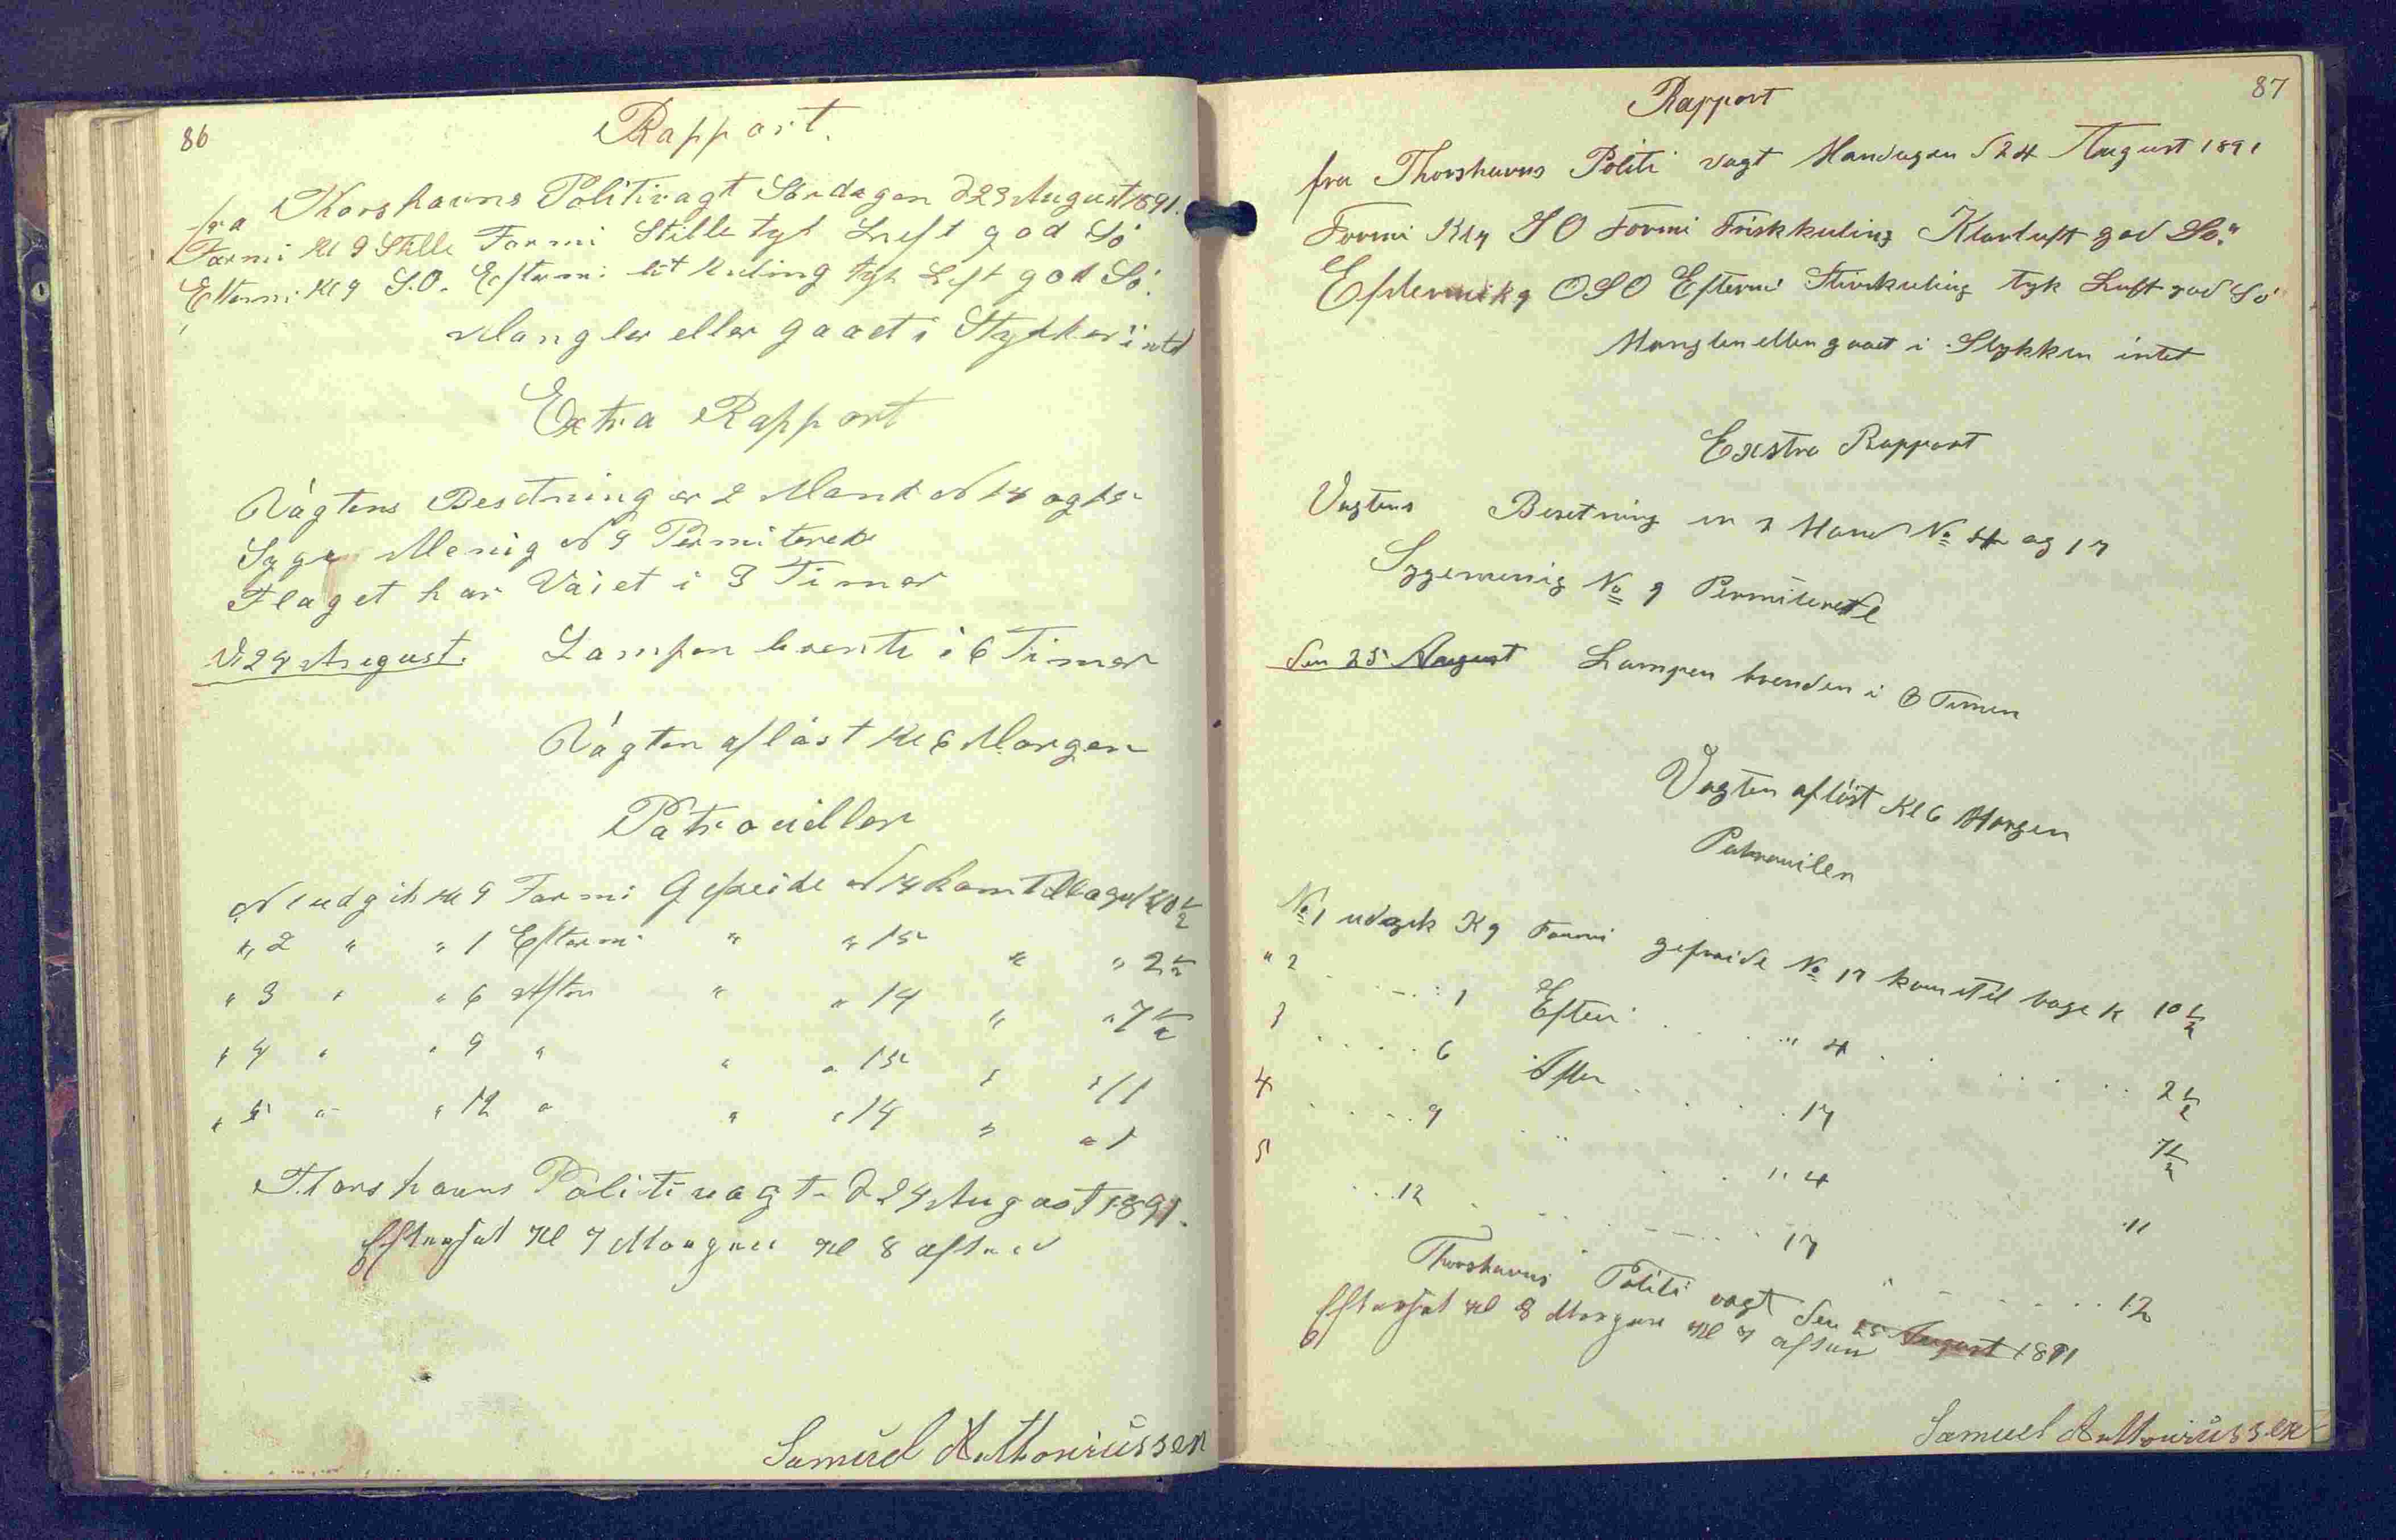 86
Rapport.
fra Thorshavns Politivagt Söndagen d 23 August 1891.
Formi Kl 9 Stille Formi Stille tyk Luft god Sö
Efterm: Kl 9 S.O. Efterm: let Kuling tyk Luft god Sö.
Mangler eller gaaet i Stykker intet
Extra Rapport
Vagtens Besetning er 2 Mand N 14 og 15
Syge Menig N 9 Permiterede
Flaget har Vaiet i 3 Timer
D. 24 August. Lampen brente i 6 Timer
Vagten aflöst Kl 6 Morgen
Patrouiller
N 1 udgik Kl 9 Formi Gefreide N 14 kom Tilbage Kl 10 1/2
" 2 " " 1 Efterm " " 15 " " 2 1/2
" 3 " " 6 Aften " " 14 " " 7 1/2
" 4 " " 9 " " " 15 " " 11
" 5 " " 12 " " " 14 " " 1
Thorshavns Politivagt d 24 August 1891.
Eftersat Kl 7 Morgen Kl 8 aften
Samuel Anthoniussen
87
Rapport
fra Thorshavns Politi vagt Mandagen d 24 August 1891
Formi Kl 9 SO Formi Friskkuling Klarluft god Sö.
Eftermi k 9 OSO Eftermi Stivkuling tyk Luft god Sö
Mangler eller gaaet i Stykker intet
Exstra Rapport
Vagtens Besetning er 2 Mand No 4 og 17
Sygemenig No 9 Permiterede
den 25 August Lampen brenden i 6 Timer
Vagten aflöst Kl 6 Morgen
Patrouiler
No 1 udgik K 9 Formi gefreide No 17 kom Til bage K 10 1/2
" 2 1 Efterm " 4 2 1/2
3 6 Aften 17 7 1/2
4 9 " " 4 11
5 12 17 12
Thorshavns Politi vagt den 25 August 1891
Eftersat Kl 8 Morgen Kl 7 aften
Samuel Anthoniussen